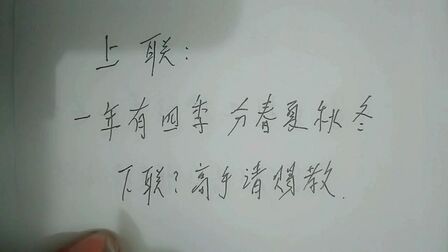 上联:
一年有四季 分春夏秋冬
下联?高手请赐教.